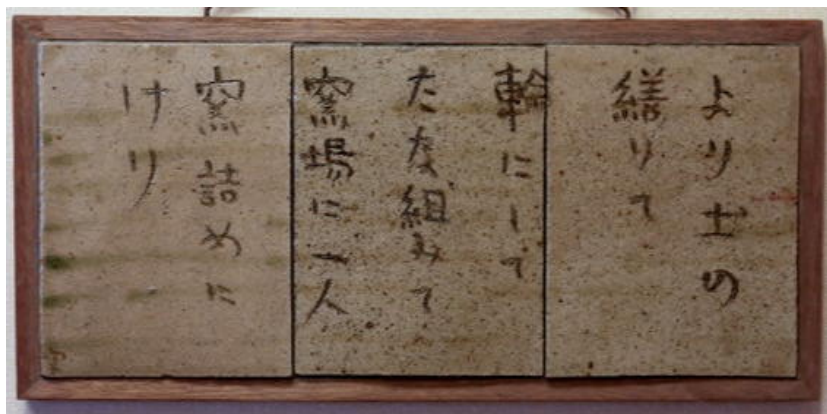 より土の
繕りて
輪にして
たな組みて
窯場に一人
窯詰めに
けり